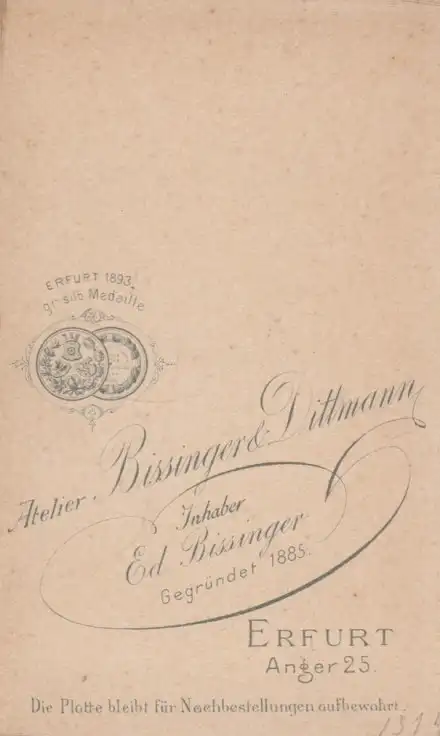 ERFURT 1893.
gr. silb. Medaille
Atelier Bissinger & Dittmann
Inhaber
Ed Bissinger
Gegründet 1885.
ERFURT
Anger 25.
Die Platte bleibt für Nachbestellungen aufbewahrt.